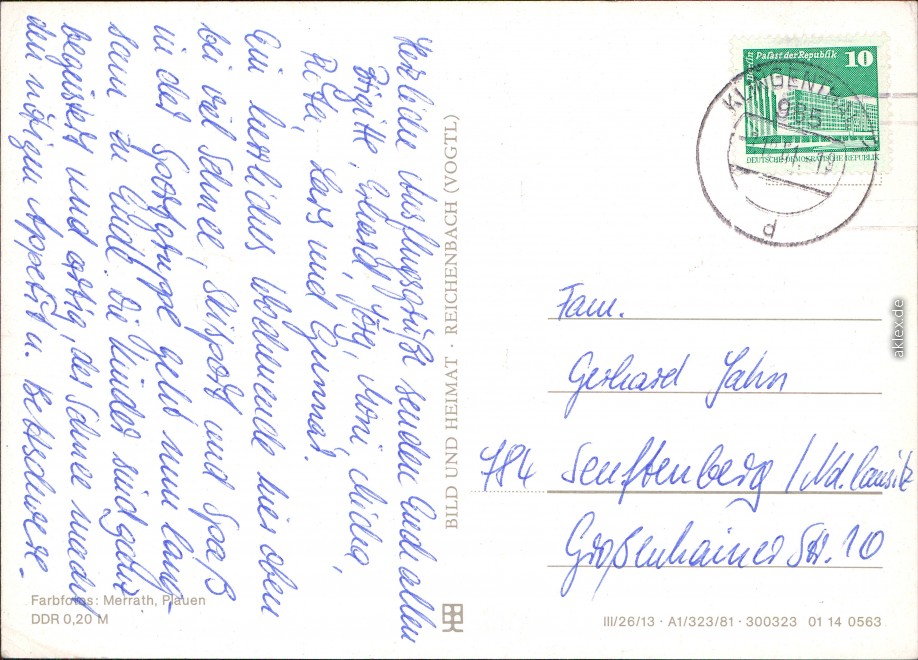 Herzliche Ausflugsgrüße senden Euch allen
Brigitte, Erhard, Jörg, Moni, Micha,
Rita, Lars und Gunnar.
Ein herrliches Wochenende hier oben
bei viel Schnee, Skisport und Spaß
in der Sportgruppe geht nun lang-
sam zu Ende. Die Kinder sind ganz
begeistert und artig, der Schnee macht
den nötigen Appetit u. Bettschwere.
BILD UND HEIMAT · REICHENBACH (VOGTL)
Farbfotos: Merrath, Plauen
DDR 0,20 M
Berlin Palast der Republik 10
DEUTSCHE DEMOKRATISCHE REPUBLIK
985
d
Fam.
Gerhard Jahn
784 Senftenberg / Nd. Lausitz
Großenhainer Str. 10
III/26/13 · A1/323/81 · 300323 01 14 0563
aklex.de